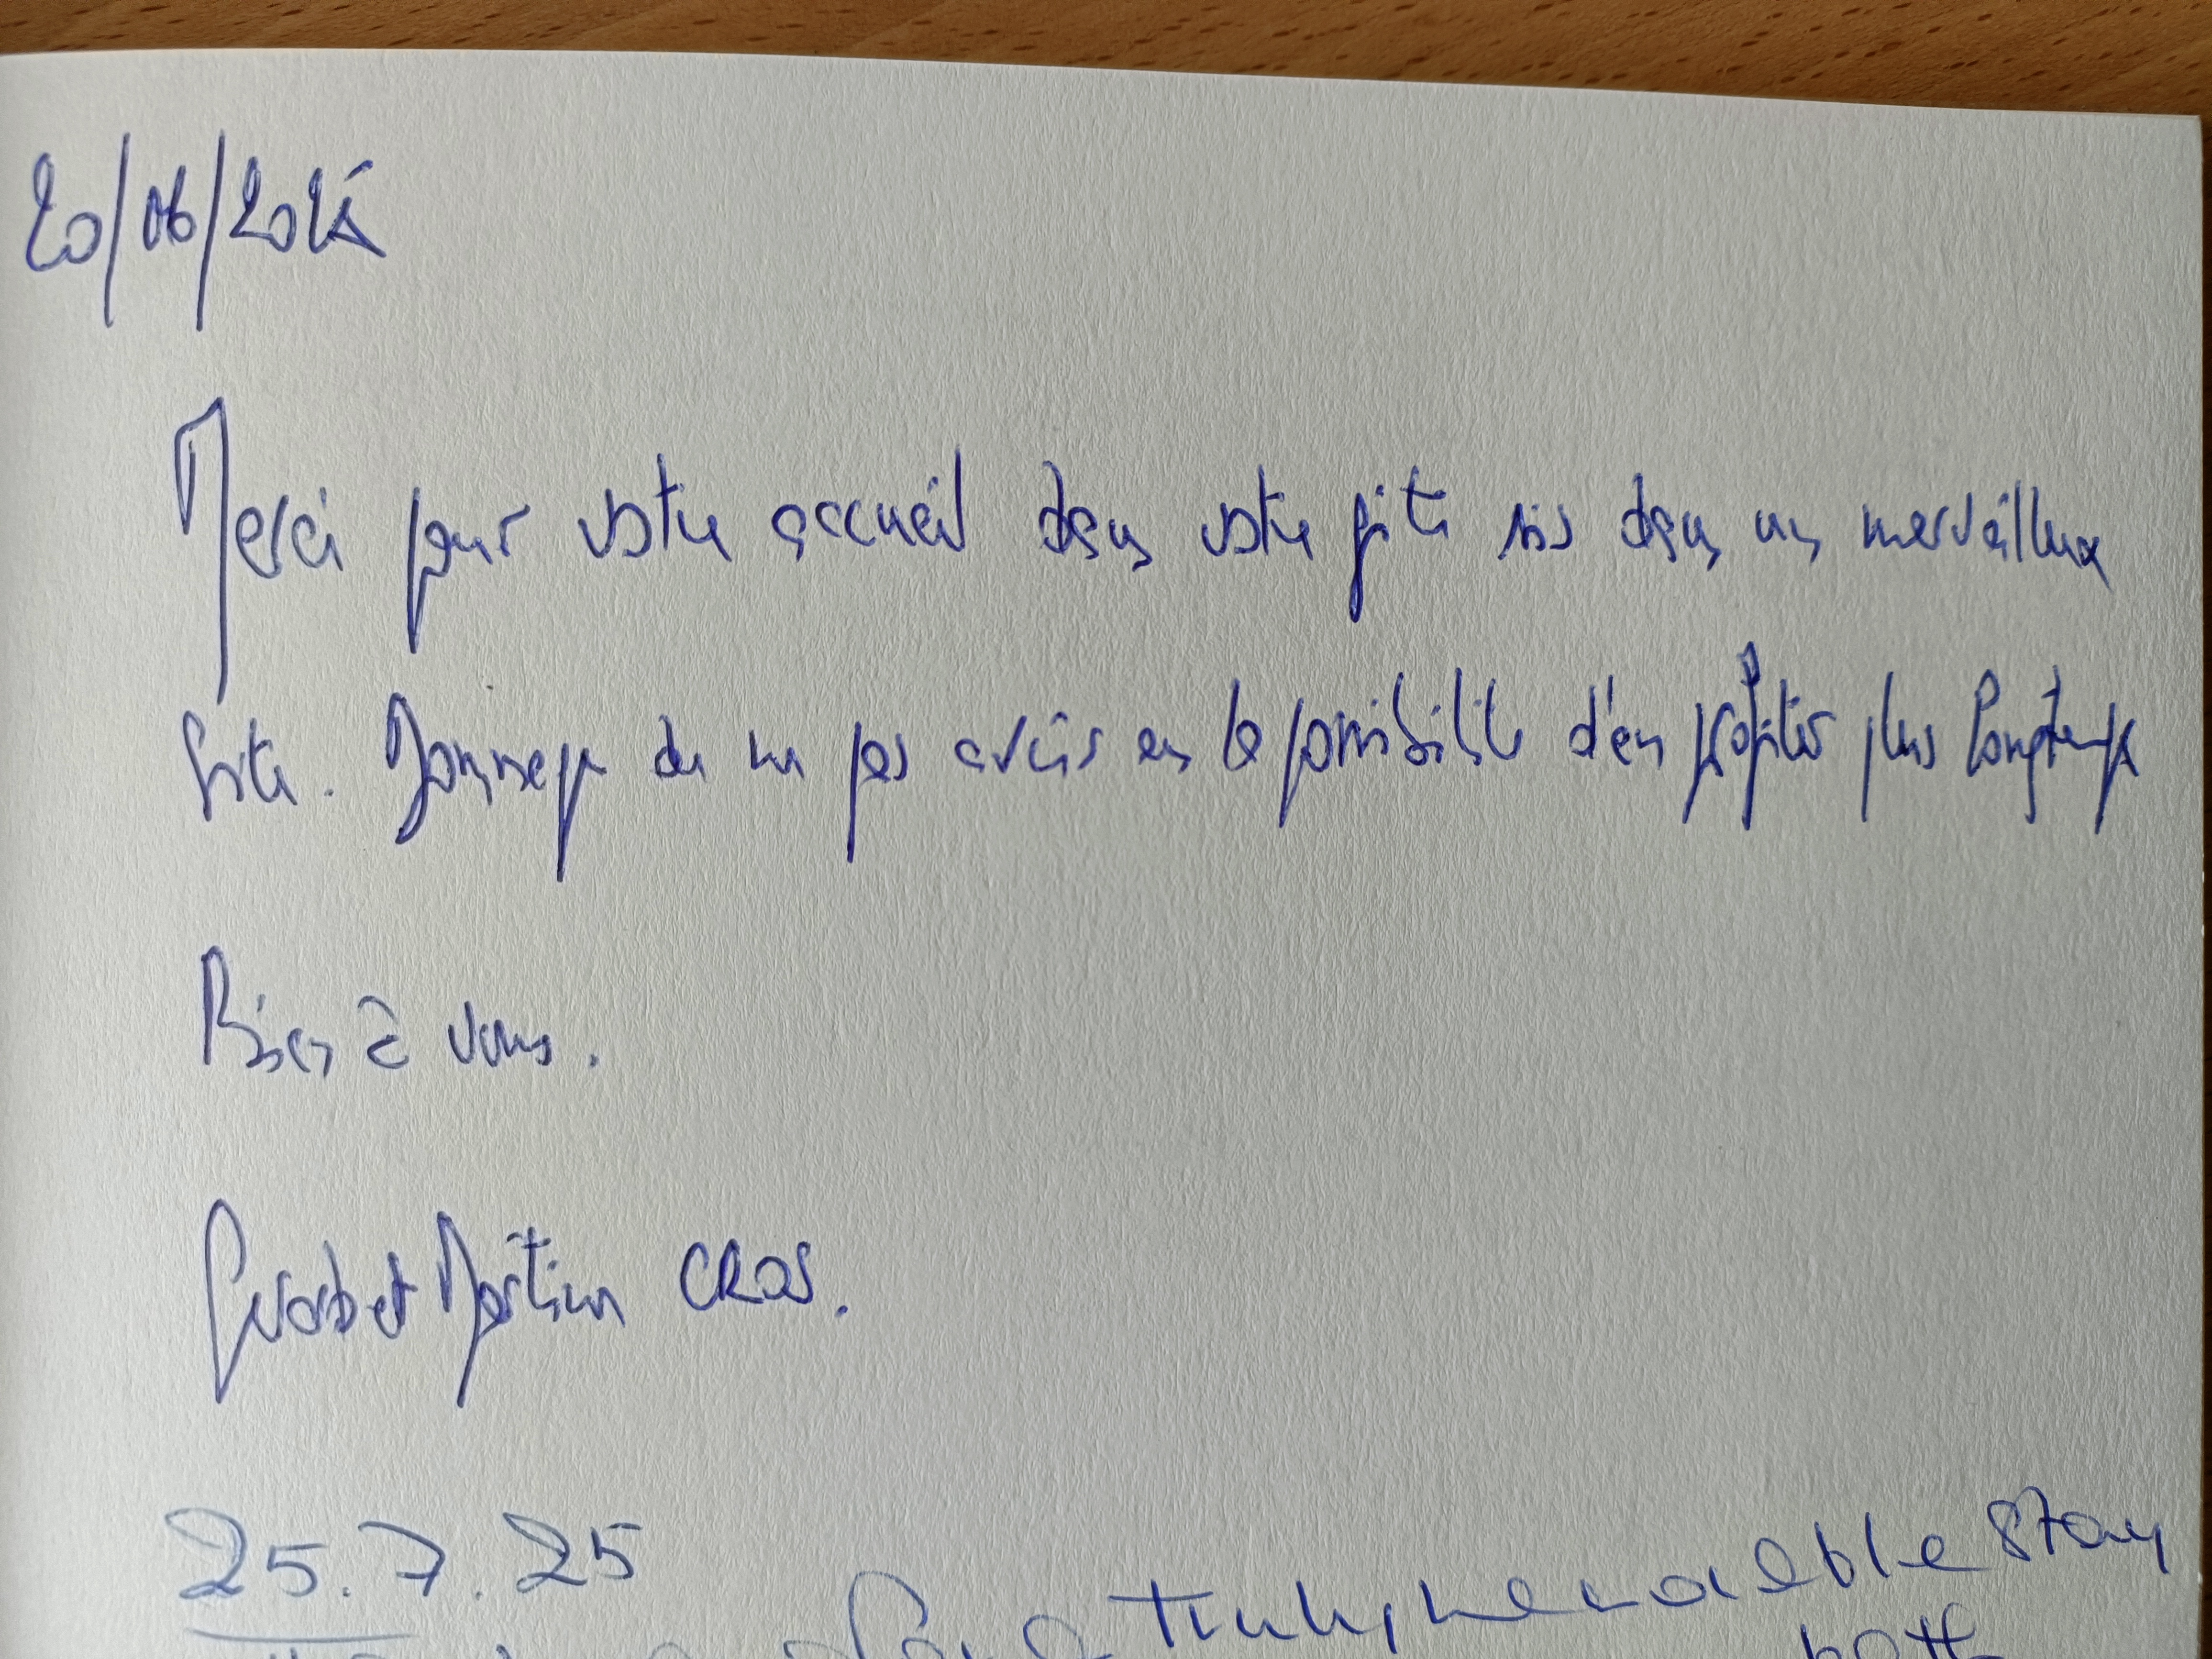 20/06/2025
Merci pour votre accueil dans votre gîte sis dans un merveilleux
site. Dommage de ne pas avoir eu la possibilité d'en profiter plus longtemps
Bises à vous.
et Martine CROS.
25.7.25
a truly memorable stay
both